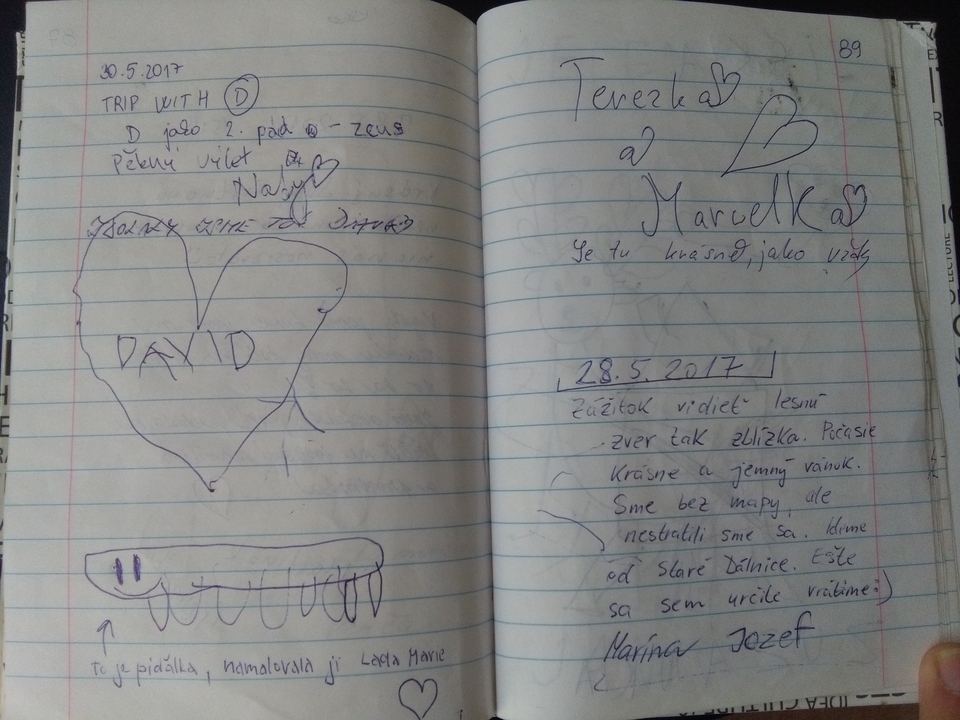 30.5.2017
TRIP WITH D
D jako 2. pád - zeus
Pěkný výlet
Naty
DAVID
To je píďalka, namalovala ji Lada Marie
89
Terezka
a
Marcelka
Je tu krásně, jako vždy
28.5.2017
Zážitok vidieť lesnú
zver tak zblízka. Počasie
krásne a jemný vánok.
Sme bez mapy, ale
nestratili sme sa. Ideme
od Staré Dálnice. Ešte
sa sem určite vrátime :)
Marína Jozef